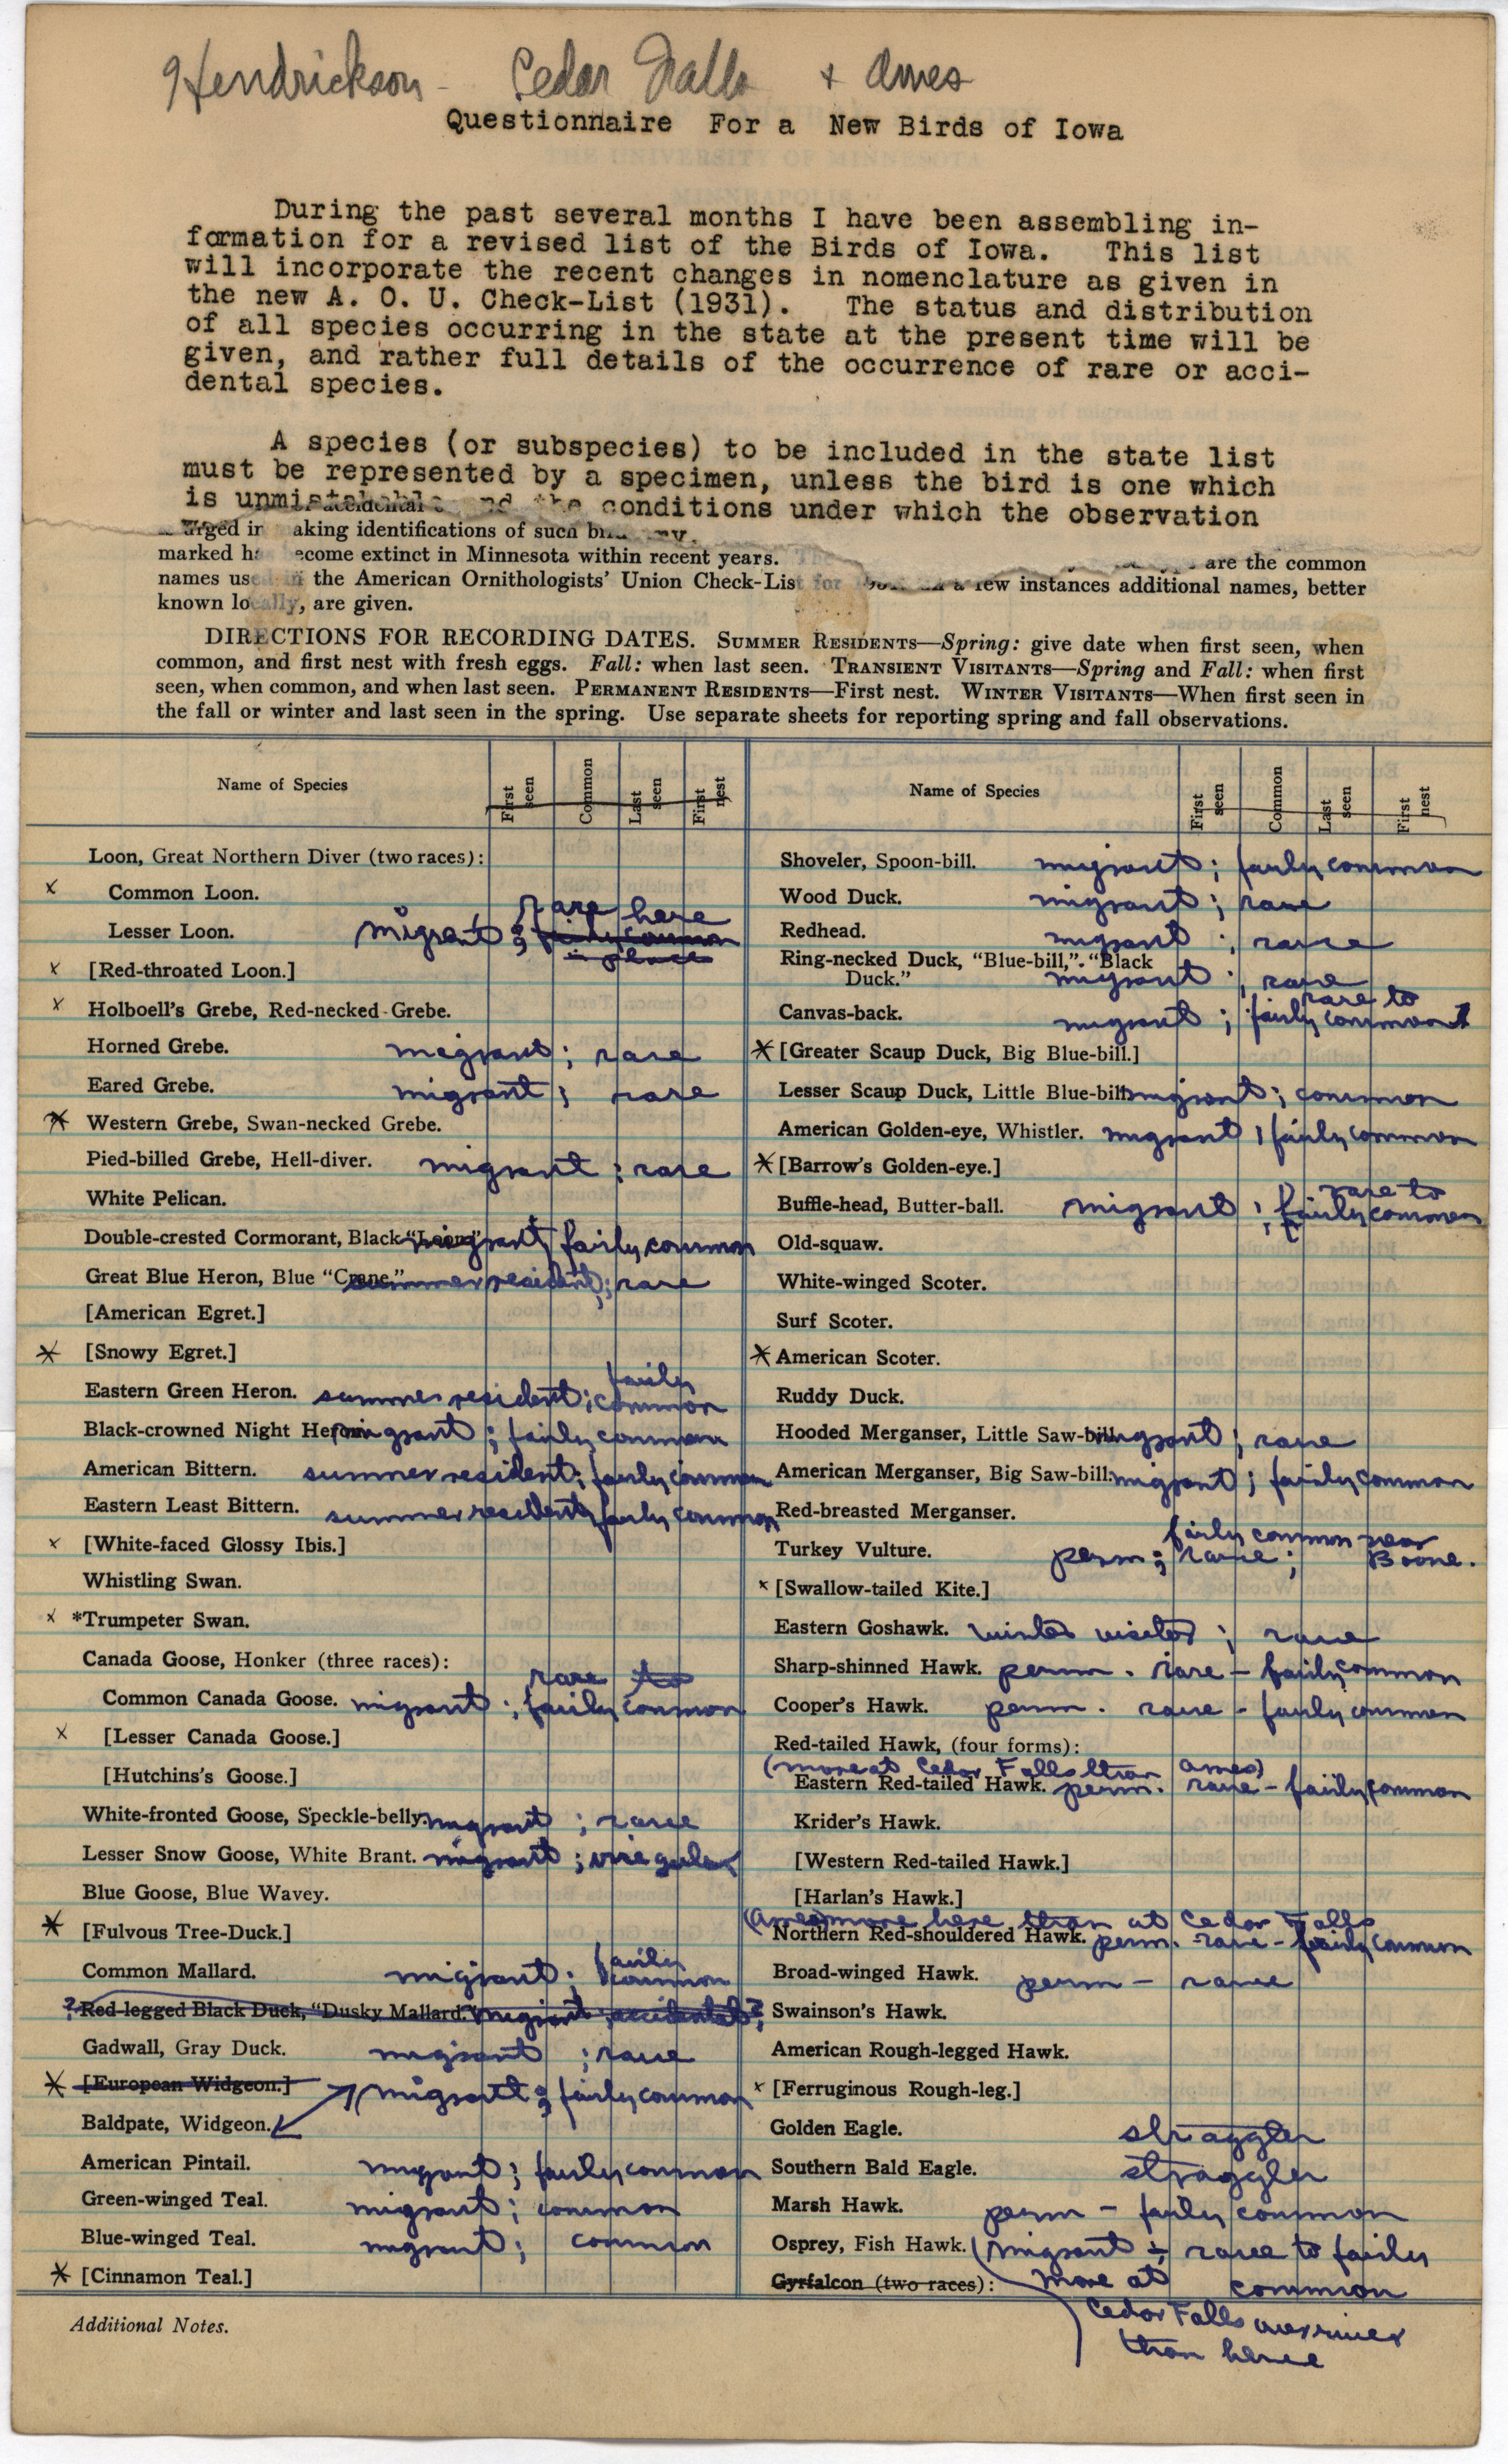 Hendrickson - Cedar Falls + Ames
Questionnaire For a New Birds of Iowa
During the past several months I have been assembling in-
formation for a revised list of the Birds of Iowa. This list
will incorporate the recent changes in nomenclature as given in
the new A. O. U. Check-List (1931). The status and distribution
of all species occurring in the state at the present time will be
given, and rather full details of the occurrence of rare or acci-
dental species.
A species (or subspecies) to be included in the state list
must be represented by a specimen, unless the bird is one which
is unmistakable and the conditions under which the observation
accidental
urged in making identifications of such
marked have become extinct in Minnesota within recent years. are the common
names used in the American Ornithologists' Union Check-List for a few instances additional names, better
known locally, are given.
DIRECTIONS FOR RECORDING DATES. SUMMER RESIDENTS—Spring: give date when first seen, when
common, and first nest with fresh eggs. Fall: when last seen. TRANSIENT VISITANTS—Spring and Fall: when first
seen, when common, and when last seen. PERMANENT RESIDENTS—First nest. WINTER VISITANTS—When first seen in
the fall or winter and last seen in the spring. Use separate sheets for reporting spring and fall observations.
Name of Species First seen Common Last seen First nest
Loon, Great Northern Diver (two races):
x Common Loon.
rare here
Lesser Loon. migrant; fairly common
in places
x [Red-throated Loon.]
x Holboell's Grebe, Red-necked Grebe.
Horned Grebe. migrant; rare
Eared Grebe. migrant; rare
* Western Grebe, Swan-necked Grebe.
Pied-billed Grebe, Hell-diver. migrant; rare
White Pelican.
Double-crested Cormorant, Black "Loon" migrant; fairly common
Great Blue Heron, Blue "Crane." summer resident; rare
[American Egret.]
* [Snowy Egret.]
Eastern Green Heron. summer resident; fairly common
Black-crowned Night Heron. migrant; fairly common
American Bittern. summer resident; fairly common
Eastern Least Bittern. summer resident; fairly common
x [White-faced Glossy Ibis.]
Whistling Swan.
x *Trumpeter Swan.
Canada Goose, Honker (three races):
rare to
Common Canada Goose. migrant; fairly common
x [Lesser Canada Goose.]
[Hutchins's Goose.]
White-fronted Goose, Speckle-belly. migrant; rare
Lesser Snow Goose, White Brant. migrant; irregular
Blue Goose, Blue Wavey.
* [Fulvous Tree-Duck.]
Common Mallard. migrant; fairly common
? Red-legged Black Duck, "Dusky Mallard." migrant; accidental?
Gadwall, Gray Duck. migrant; rare
* [European Widgeon.] migrant; fairly common
Baldpate, Widgeon.
American Pintail. migrant; fairly common
Green-winged Teal. migrant; common
Blue-winged Teal. migrant; common
* [Cinnamon Teal.]
Additional Notes.
Name of Species First seen Common Last seen First nest
Shoveler, Spoon-bill. migrant; fairly common
Wood Duck. migrant; rare
Redhead. migrant; rare
Ring-necked Duck, "Blue-bill,". "Black
Duck." migrant; rare
rare to
Canvas-back. migrant; fairly common
* [Greater Scaup Duck, Big Blue-bill.]
Lesser Scaup Duck, Little Blue-bill. migrant; common
American Golden-eye, Whistler. migrant; fairly common
* [Barrow's Golden-eye.]
rare to
Buffle-head, Butter-ball. migrant; fairly common
Old-squaw.
White-winged Scoter.
Surf Scoter.
* American Scoter.
Ruddy Duck.
Hooded Merganser, Little Saw-bill. migrant; rare
American Merganser, Big Saw-bill. migrant; fairly common
Red-breasted Merganser.
fairly common near
Turkey Vulture. perm; rare; Boone.
x [Swallow-tailed Kite.]
Eastern Goshawk. winter visitor; rare
Sharp-shinned Hawk. perm. rare - fairly common
Cooper's Hawk. perm. rare - fairly common
Red-tailed Hawk, (four forms):
(more at Cedar Falls than Ames)
Eastern Red-tailed Hawk. perm. rare - fairly common
Krider's Hawk.
[Western Red-tailed Hawk.]
[Harlan's Hawk.]
(Ames) more here than at Cedar Falls
Northern Red-shouldered Hawk. perm. rare - fairly common
Broad-winged Hawk. perm - rare
Swainson's Hawk.
American Rough-legged Hawk.
x [Ferruginous Rough-leg.]
Golden Eagle. straggler
Southern Bald Eagle. straggler
Marsh Hawk. perm - fairly common
Osprey, Fish Hawk. (migrant; rare to fairly
Gyrfalcon (two races): more at common
Cedar Falls over river
than here